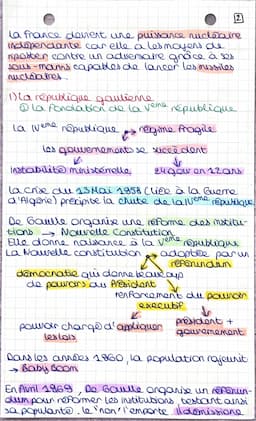 2
La France devient une puissance nucléaire
indépendante car elle a les moyens de
riposter contre un adversaire grâce à ses
sous-marins capables de lancer les missiles
nucléaires.
1) La république gaullienne
① La fondation de la Vème république
La IVème république → régime fragile
les gouvernements se succèdent
instabilité ministérielle 24 gouv en 12 ans
La crise du 13 Mai 1958 (liée à la Guerre
d'Algérie) précipite la chute de la IVème république
De Gaulle organise une réforme des institu-
tions → Nouvelle Constitution
Elle donne naissance à la Vème république
La Nouvelle constitution → adoptée par un
référendum
démocratie qui donne beaucoup
de pouvoirs au Président
renforcement du pouvoir
exécutif
pouvoir chargé d'appliquer président +
les lois gouvernement
Dans les années 1960, la population rajeunit
→ Baby Boom
En Avril 1969, De Gaulle organise un référen-
dum pour réformer les institutions, testant ainsi
sa popularité. le "non" l'emporte. Il démissionne